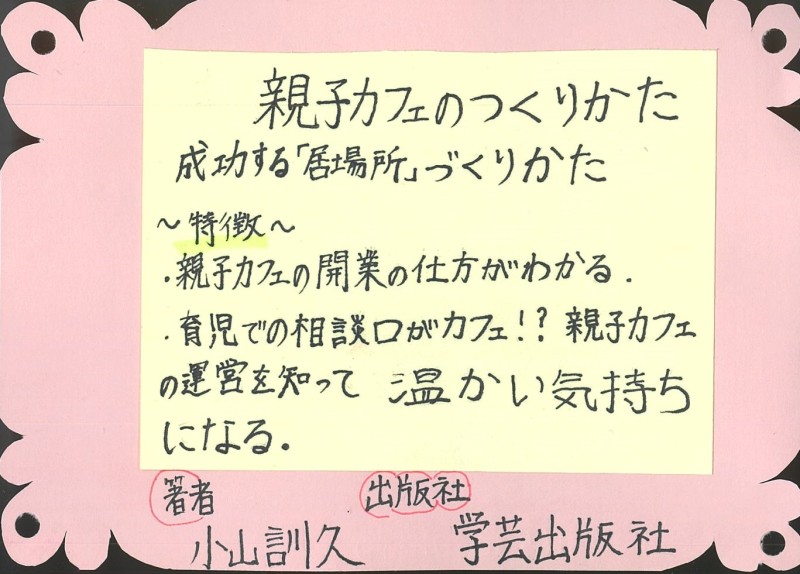 親子カフェのつくりかた
成功する「居場所」づくりかた
～特徴～
・親子カフェの開業の仕方がわかる．
・育児での相談口がカフェ！？親子カフェ
の運営を知って 温かい気持ち
になる．
著者 出版社
小山訓久 学芸出版社